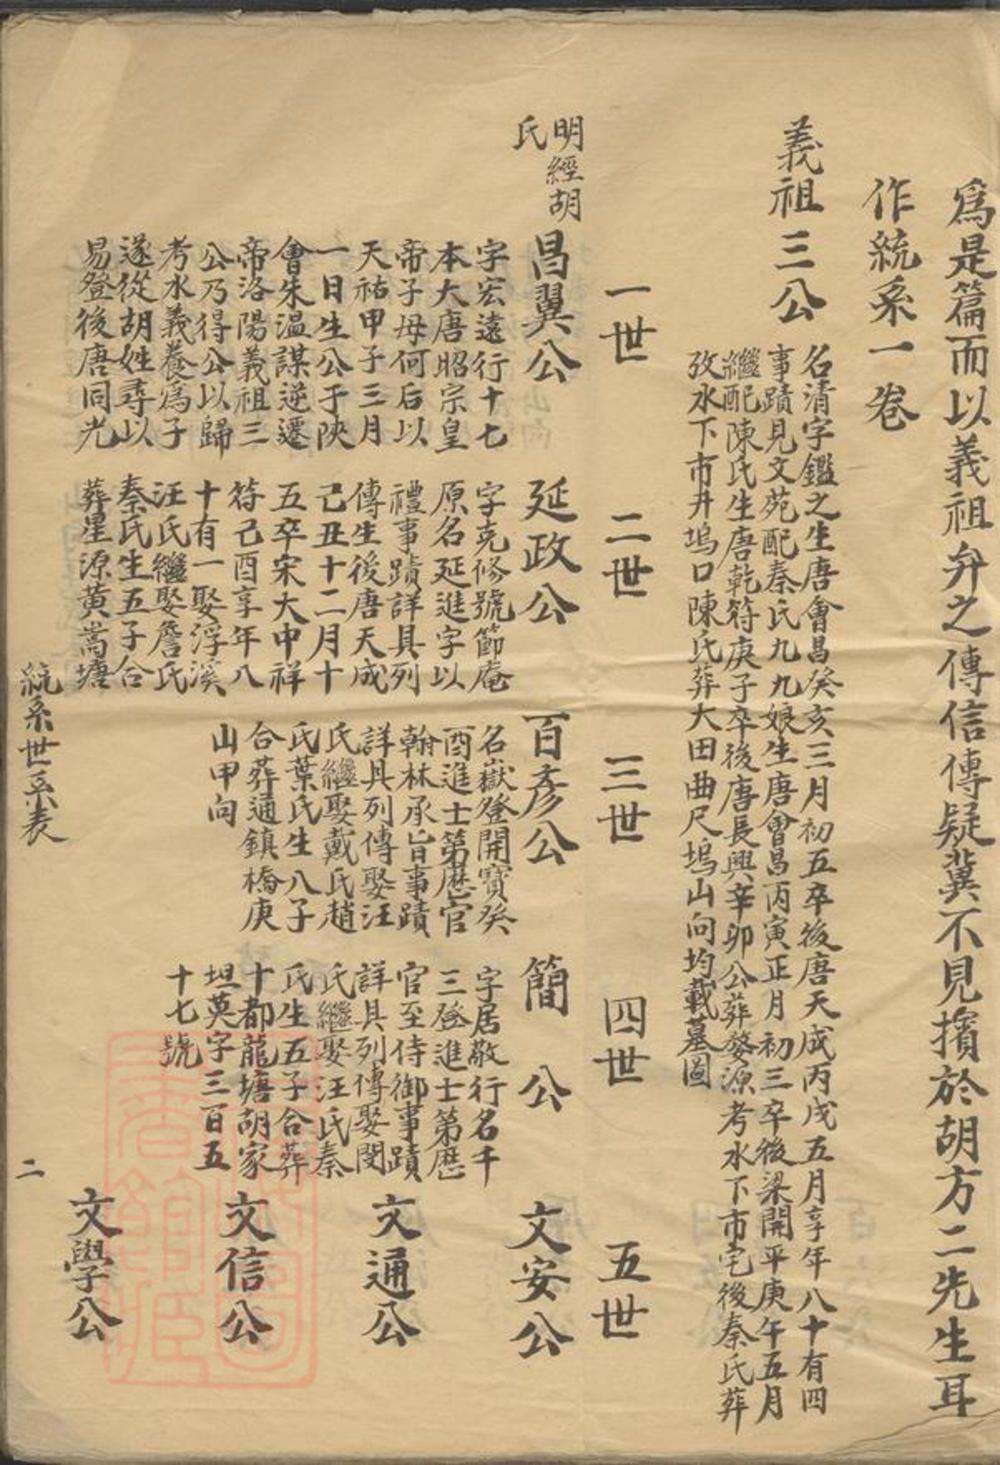 爲是篇而以義祖弁之傳信傳疑冀不見擯於胡方二先生耳
作統系一卷
義祖三公
名清字鑑之生唐會昌癸亥三月初五卒後唐天成丙戌五月享年八十有四
事蹟見文苑配秦氏九九娘生唐會昌丙寅正月初三卒後梁開平庚午五月
繼配陳氏生唐乾符庚子卒後唐長興辛卯公葬婺源考水下市宅後秦氏葬
攷水下市井塢口陳氏葬大田曲尺塢山向均載墓圖
一世
二世
三世
四世
五世
明經胡
氏
昌翼公
字宏遠行十七
本大唐昭宗皇
帝子母何后以
天祐甲子三月
一日生公于陝
會朱溫謀逆遷
帝洛陽義祖三
公乃得公以歸
考水義養爲子
遂從胡姓尋以
易登後唐同光
延政公
字克修號節庵
原名延進字以
禮事蹟詳具列
傳生後唐天成
己丑十二月十
五卒宋大中祥
符己酉享年八
十有一娶浮溪
汪氏繼娶詹氏
秦氏生五子合
葬星源黃嵩塘
百彥公
名嶽登開寶癸
酉進士第歷官
翰林承旨事蹟
詳具列傳娶汪
氏繼娶戴氏趙
氏葉氏生八子
合葬通鎮橋庚
山甲向
簡公
字居敬行名千
三登進士第歷
官至侍御事蹟
詳具列傳娶閔
氏繼娶汪氏秦
氏生五子合葬
十都龍塘胡家
坦英字三百五
十七號
文安公
文通公
文信公
文學公
統系世系表
二